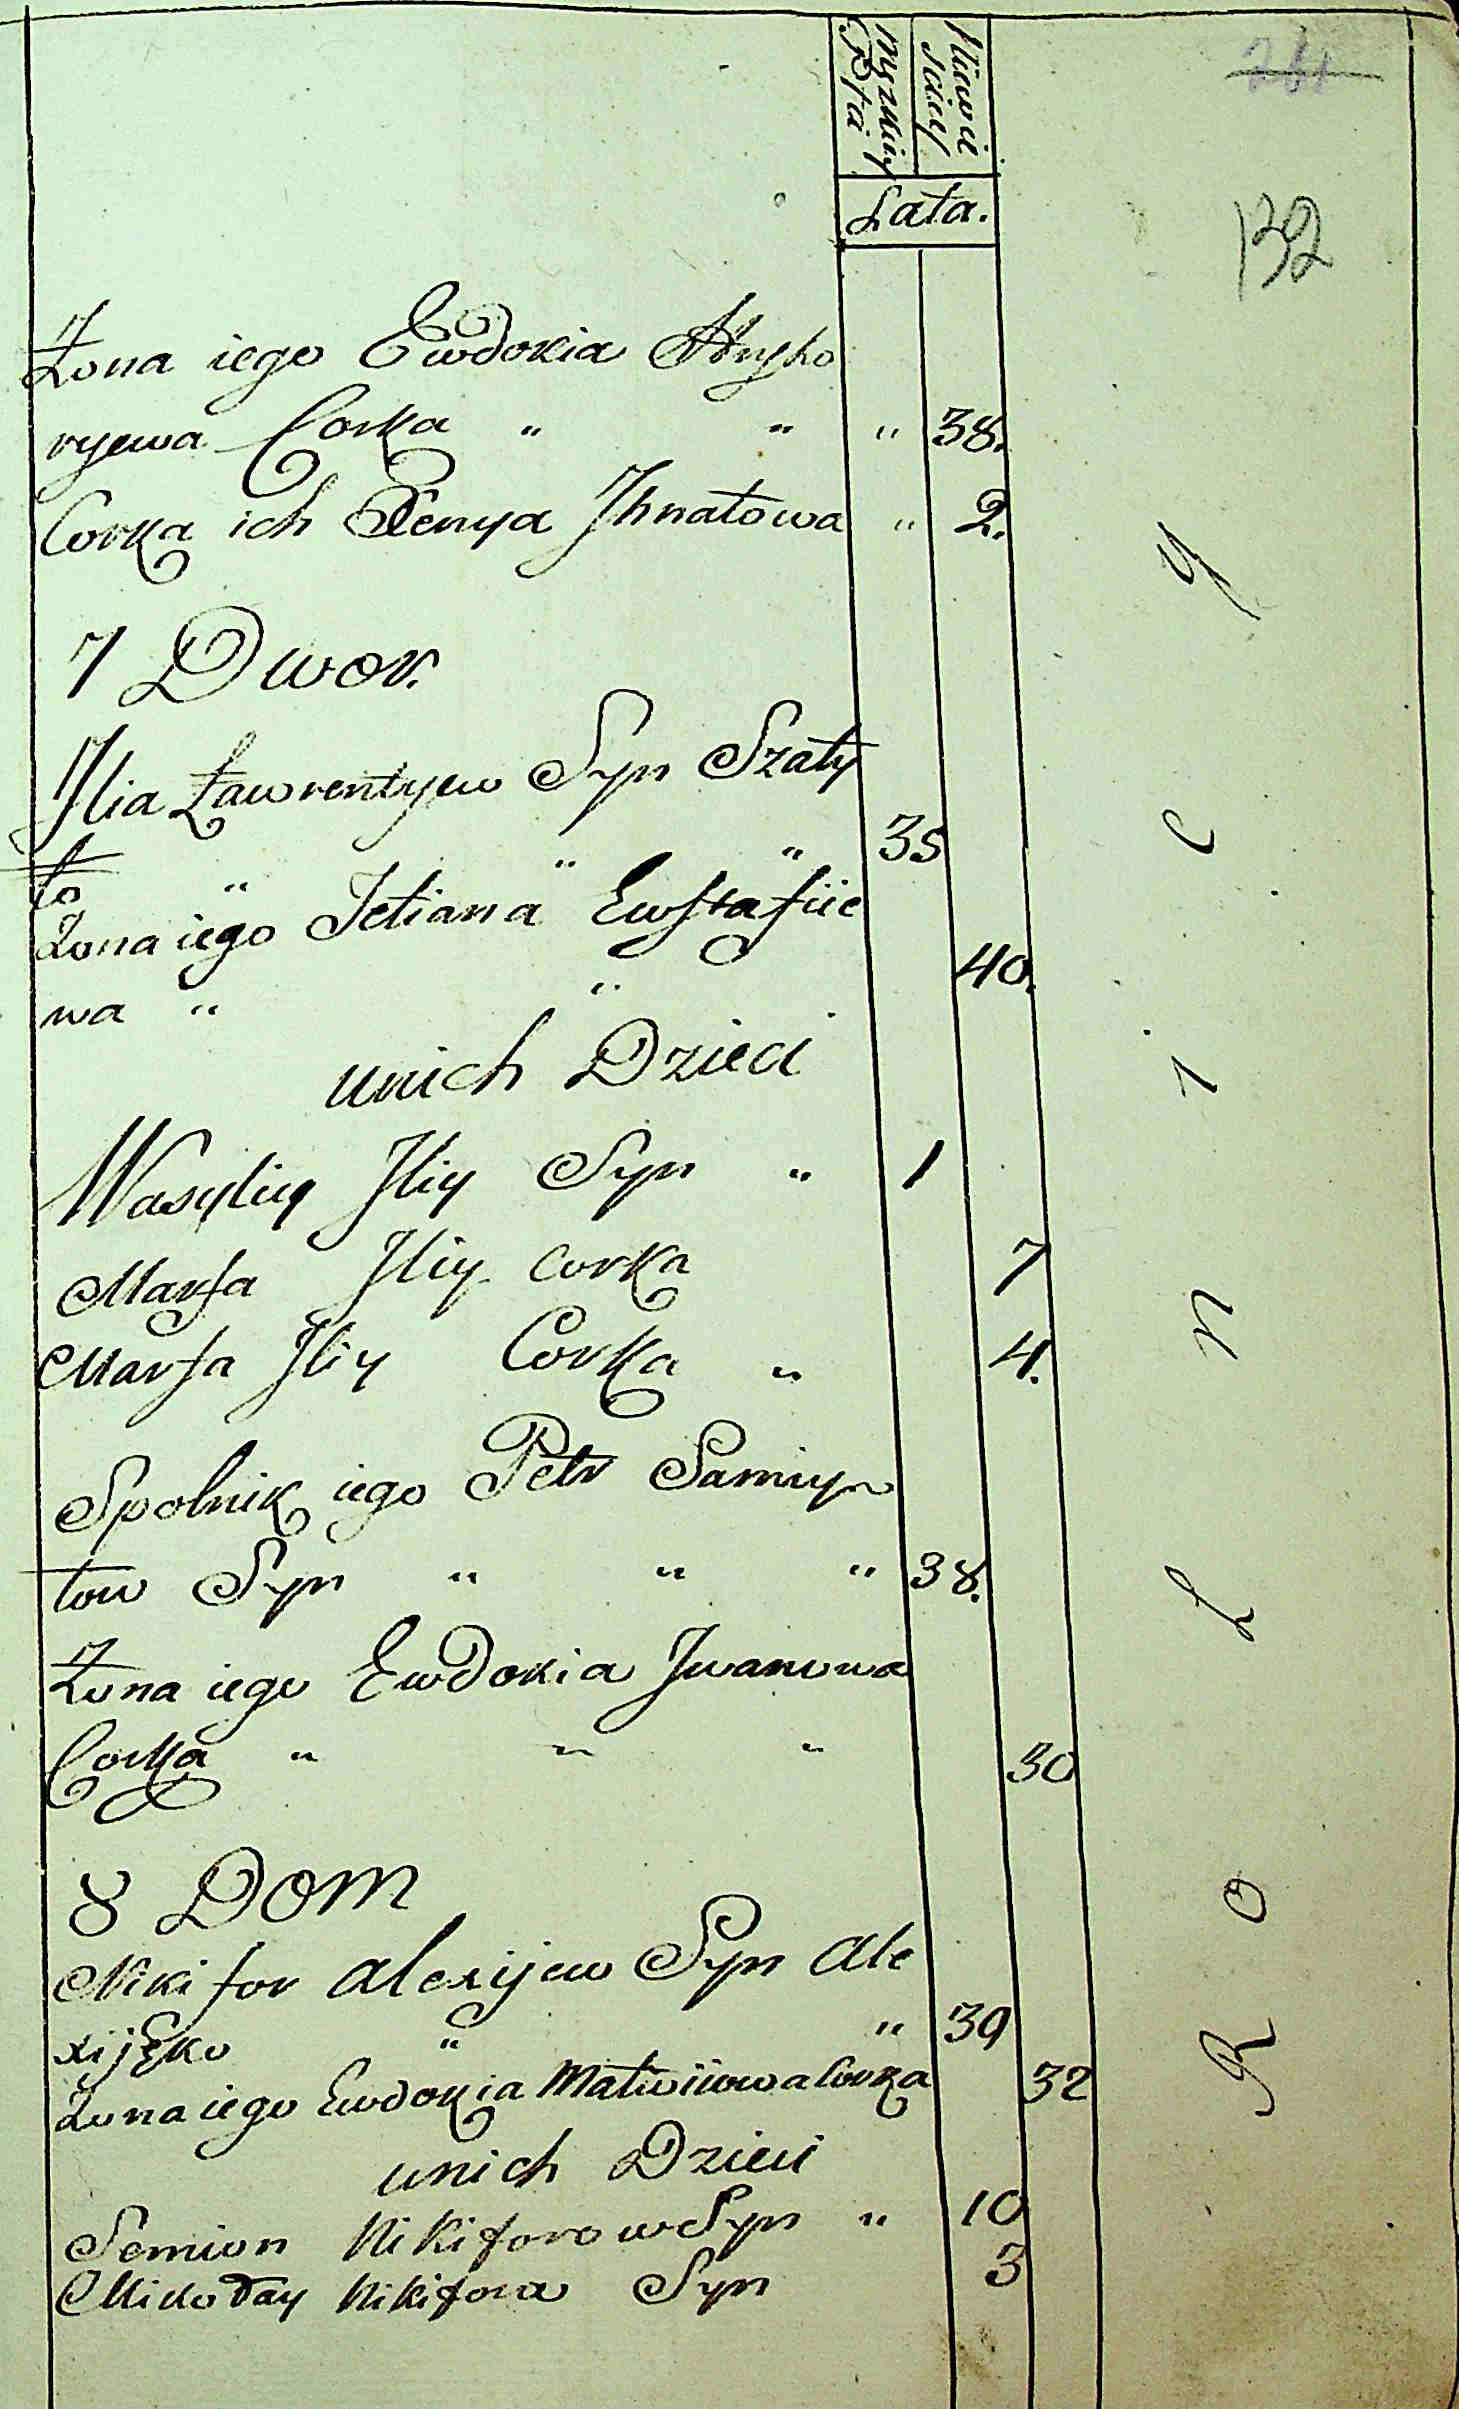 Męzkiey Płci
Niewieściey
Lata.
132
Żona iego Ewdokia Hryho
ryewa Corka " " " 38.
Corka ich Xenya Ihnatowa " 2.
7 Dwor.
Ilia Ławrentyew Syn Szaty
ło " " " 35
Żona iego Tetiana Ewstafiie
wa " " 40.
unich Dzieci
Wasyliy Iliy Syn " 1
Marfa Iliy Corka 7
Marfa Iliy Corka " 4.
Spolnik iego Petr Samuy
łow Syn " " " 38.
Żona iego Ewdokia Iwanowa
Corka " " " 30
8 Dom
Nikifor Alexijew Syn Ale
xijęko " " 39
Żona iego Ewdokia Matwiiowa Corka 32
unich Dzieci
Semion Nikiforow Syn " 10
Mikołay Nikifora Syn 3
R o l n i c y